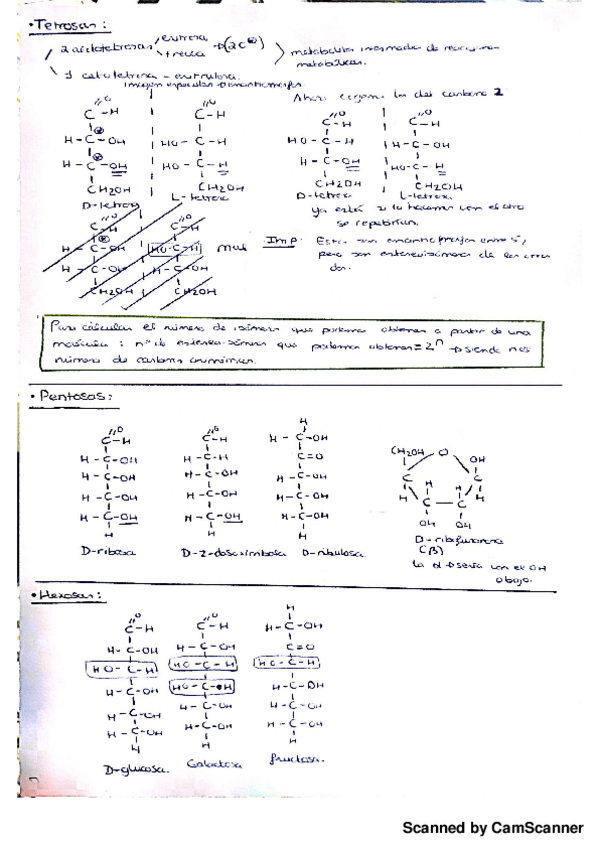 • Tetrosas:
2 aldotetrosas
eritrosa
treosa
→ (2C*)
metabolitos intermedios de reacciones metabólicas.
1 cetotetrosa - eritrulosa.
Imagen especular → enantiomorfos
Ahora cogemos la del carbono 2
C - H
C - H
C - H
C - H
H - C - OH
HO - C - H
HO - C - H
H - C - OH
H - C - OH
HO - C - H
H - C - OH
HO - C - H
CH2OH
CH2OH
CH2OH
CH2OH
D-tetrosa
L-tetrosa
D-tetrosa
L-tetrosa
ya está si lo hacemos con el otro
se repetirían.
C - H
C - H
H - C - OH
HO - C - H
mal
H - C - OH
H - C - OH
CH2OH
CH2OH
Imp: Estas son enantiomorfas entre sí,
pero son estereoisómeras de las otras
dos.
Para calcular el número de isómeros que podemos obtener a partir de una
molécula: nº de estereoisómeros que podemos obtener = 2^n → siendo n el
número de carbonos asimétricos.
• Pentosas:
O
C - H
H - C - OH
H - C - OH
H - C - OH
H - C - OH
H
D-ribosa
O
C - H
H - C - H
H - C - OH
H - C - OH
H - C - OH
H
D-2-desoxirribosa
H
H - C - OH
C = O
H - C - OH
H - C - OH
H - C - OH
H
D-ribulosa
CH2OH
O
OH
C
C
H
H
H
H
C
C
OH
OH
D-ribofuranosa
(β)
la α → sería con el OH
abajo.
• Hexosas:
O
C - H
H - C - OH
HO - C - H
H - C - OH
H - C - OH
H - C - OH
H
D-glucosa.
O
C - H
H - C - OH
HO - C - H
HO - C - H
H - C - OH
H - C - OH
H
Galactosa
H
H - C - OH
C = O
HO - C - H
H - C - OH
H - C - OH
H - C - OH
H
fructosa.
Scanned by CamScanner